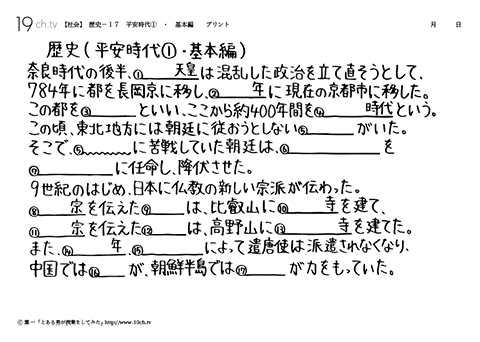 19ch.tv 【社会】 歴史－17 平安時代① ・ 基本編 プリント 月 日
歴史（平安時代①・基本編）
奈良時代の後半、① 天皇は混乱した政治を立て直そうとして、
784年に都を長岡京に移し、② 年に現在の京都市に移した。
この都を③ といい、ここから約400年間を④ 時代という。
この頃、東北地方には朝廷に従おうとしない⑤ がいた。
そこで、⑤ に苦戦していた朝廷は、⑥ を
⑦ に任命し、降伏させた。
9世紀のはじめ、日本に仏教の新しい宗派が伝わった。
⑧ 宗を伝えた⑨ は、比叡山に⑩ 寺を建て、
⑪ 宗を伝えた⑫ は、高野山に⑬ 寺を建てた。
また、⑭ 年、⑮ によって遣唐使は派遣されなくなり、
中国では⑯ が、朝鮮半島では⑰ が力をもっていた。
© 葉一「とある男が授業をしてみた」http://www.19ch.tv